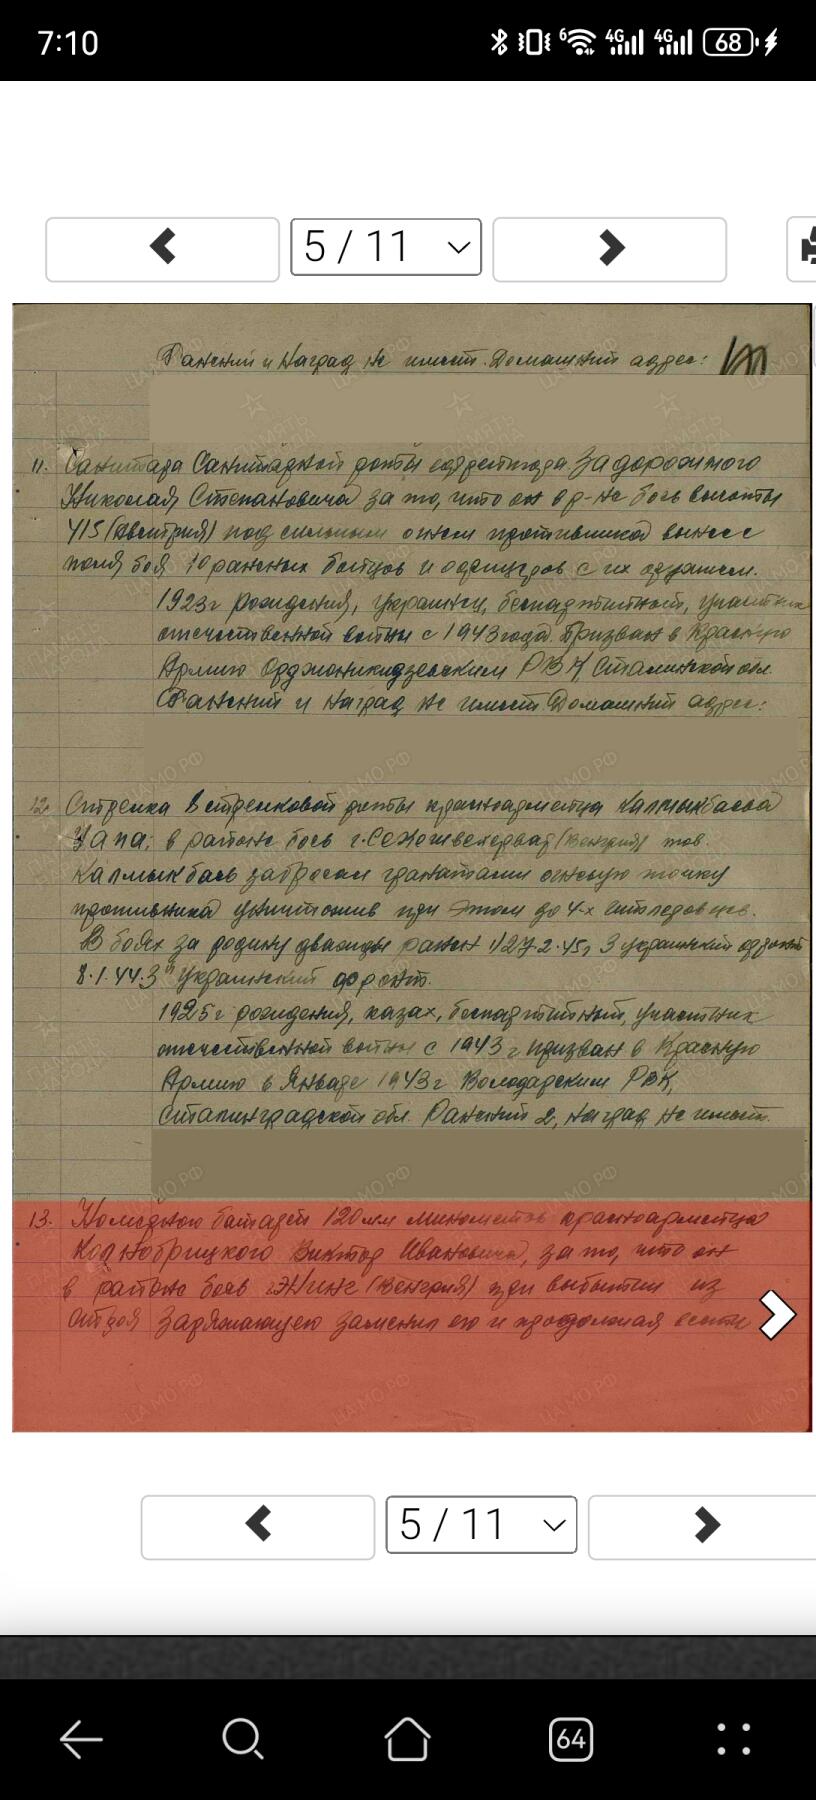 7:10
68
5 / 11
Ранений и наград не имеет. Домашний адрес:
11. Санитара Санитарной роты ефрейтора Задорожного
Николая Степановича за то, что он в р-не боев высоты
415 (Австрия) под сильным огнем противника вынес с
поля боя 10 раненых бойцов и офицеров с их оружием.
1923г рождения, украинец, беспартийный, участник
отечественной войны с 1943 года. Призван в Красную
Армию Орджоникидзевским РВК Сталинской обл.
Ранений и наград не имеет. Домашний адрес:
12. Стрелка стрелковой роты красноармейца Калмыкбаева
в районе боев г. (Венгрия) тов.
Калмыкбаев забросал гранатами огневую точку
противника уничтожив при этом до 4-х гитлеровцев.
В боях за родину дважды ранен 27.2.45г 3 украинский фронт
8.1.44. 3й украинский фронт.
1925г рождения, казах, беспартийный, участник
отечественной войны с 1943г призван в Красную
Армию в Январе 1943г Володарским РВК,
Сталинградской обл. Ранений 2, наград не имеет.
13. батареи 120мм минометов красноармейца
Виктора Ивановича, за то, что он
в районе боев (Венгрия) при выбытии из
строя Заряжающего заменил его и продолжал вести
5 / 11
64